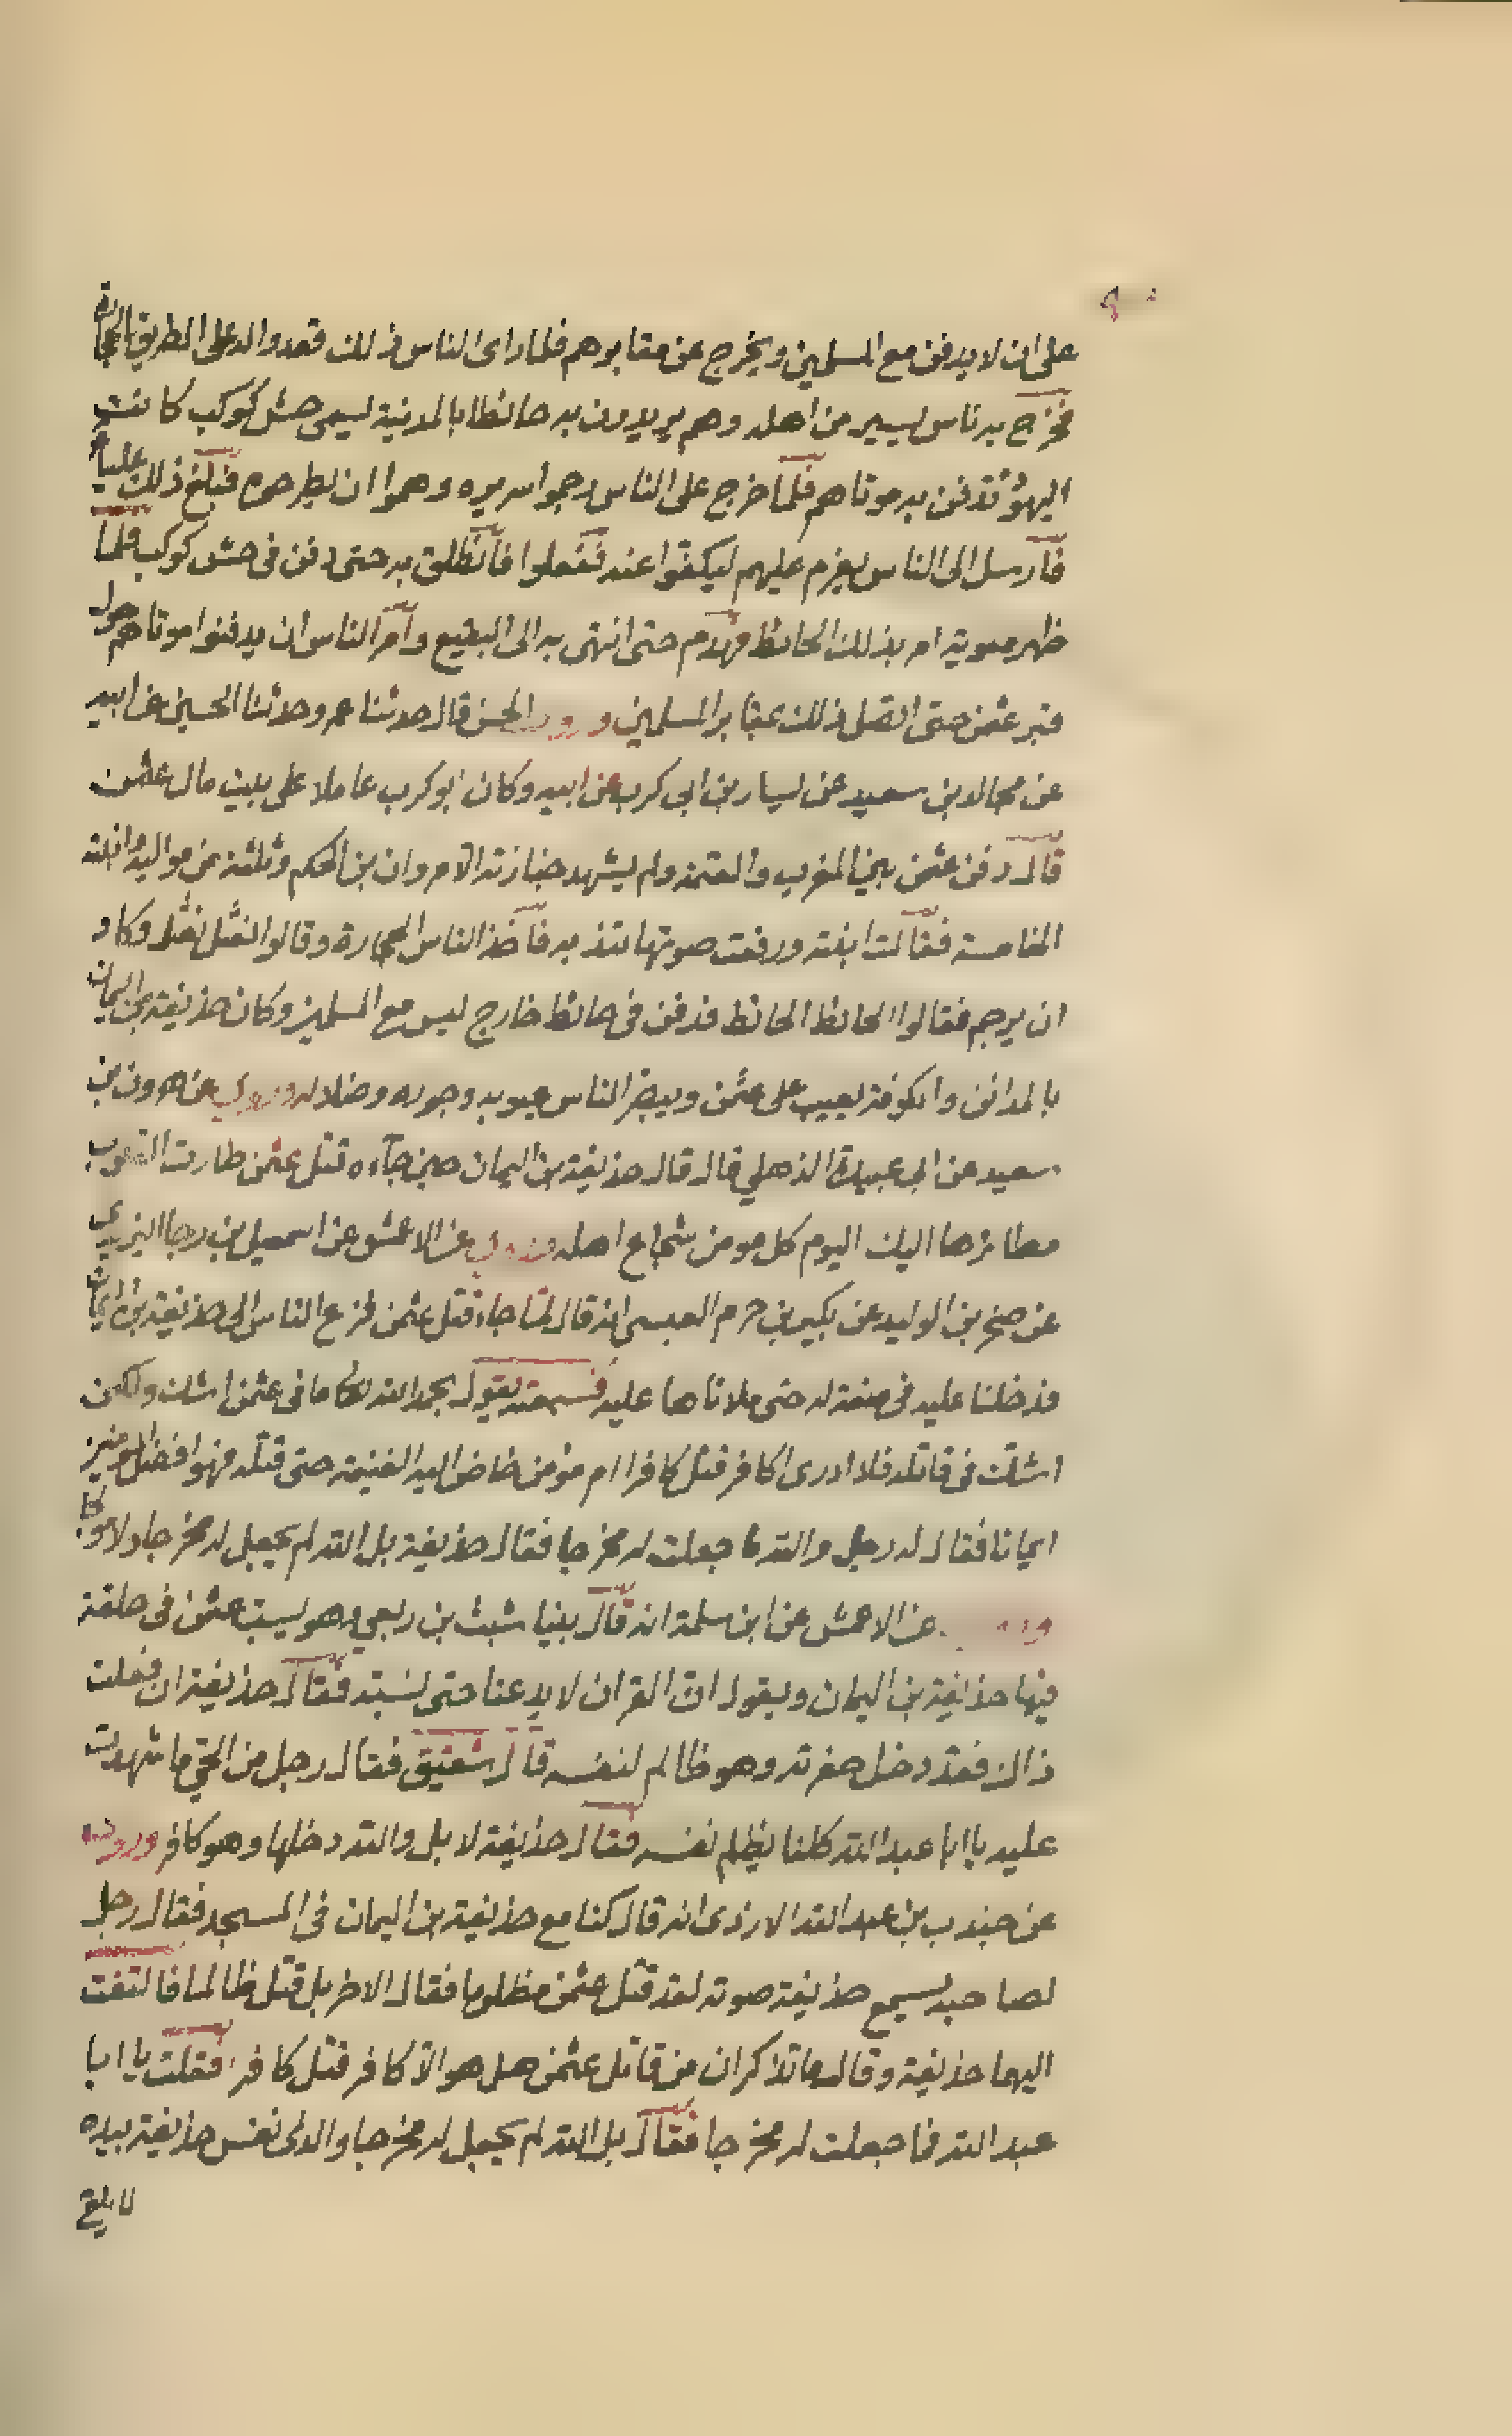 على ان لا يدفن مع المسلمين ويخرج عن مقابرهم فلما راى الناس ذلك قعدوا له على الطريق بالحجارة
فخرج به ناس يسير من اهله وهم يريدون به حائطا بالمدينة يسمى حش كوكب كانت
اليهود تدفن به موتاهم فلما خرج على الناس رجموا سريره وهموا ان يطرحوه فبلغ ذلك عليا
فارسل الى الناس يعزم عليهم ليكفوا عنه ففعلوا فانطلق به حتى دفن في حش كوكب فلما
ظهر معوية امر بذلك الحائط فهدم حتى انتهى به الى البقيع وامر الناس ان يدفنوا موتاهم حول
قبر عثمن حتى اتصل ذلك بمقابر المسلمين الحسن قال حدثنا عمر وحدثنا الحسين عن ابيه
عن مجالد بن سعيد عن يسار بن ابي كرب عن ابيه وكان ابو كرب عاملا على بيت مال عثمن
قال دفن عثمن بين المغرب والعتمة ولم يشهد جنازته الا مروان بن الحكم وثلثة من مواليه وابنته
الخامسة فقالت ابنته ورفعت صوتها تندبه فاخذ الناس الحجارة وقالوا نعثل نعثل وكاد
ان يرجم فقالوا الحائط الحائط فدفن في حائط خارج ليس مع المسلمين وكان حذيفة بن اليمان
بالمدائن والكوفة يعيب على عثمن ويبصر الناس عيوبه وجوره وضلاله وروي عن هرون بن
سعيد عن ابي عبيدة الذهلي قال قال حذيفة بن اليمان حين جآءه قتل عثمن طارت القلوب
مطائرها اليك اليوم كل مومن شجاع اهله وروي عن الاعمش عن اسمعيل بن رجا الزبيدي
عن صخر بن الوليد عن بكير بن حزم العبسي انه قال لما جاء قتل عثمن فزع الناس الى حذيفة بن اليمان
فدخلنا عليه في صفة له حتى ملاناها عليه فسمعته يقول بحمد الله ما في عثمن اشك ولكن
اشك في قاتله فلا ادرى اكافر قتل كافرا ام مؤمن خاض اليه الفتنة حتى قتله فهو افضل المومنين
ايمانا فقال له رجل والله ما جعلت له مخرجا فقال حذيفة بل الله لم يجعل له مخرجا ولا
عن الاعمش عن ابن سلمة انه قال بينا شبث بن ربعي وهو يسب عثمن في حلقة
فيها حذيفة بن اليمان ويقول ان القران لا يدعنا حتى نسبه فقال حذيفة ان فعلت
ذاك فقد دخل حفرته وهو ظالم لنفسه قال شقيق فقال رجل من الحي ما شهدت
عليه يا ابا عبد الله كلنا يظلم نفسه فقال حذيفة لا بل والله دخلها وهو كافر وروي
عن جندب بن عبد الله الازدى انه قال كنا مع حذيفة بن اليمان في المسجد فقال رجل
لصاحبه يسمع حذيفة صوته لقد قتل عثمن مظلوما فقال الاخر بل قتل ظالما فالتفت
اليهما حذيفة وقال ما تذاكران من قاتل عثمن هل هو الا كافر قتل كافرا فقلت يا ابا
عبد الله فما جعلت له مخرجا فقال بل الله لم يجعل له مخرجا والذى نفس حذيفة بيده